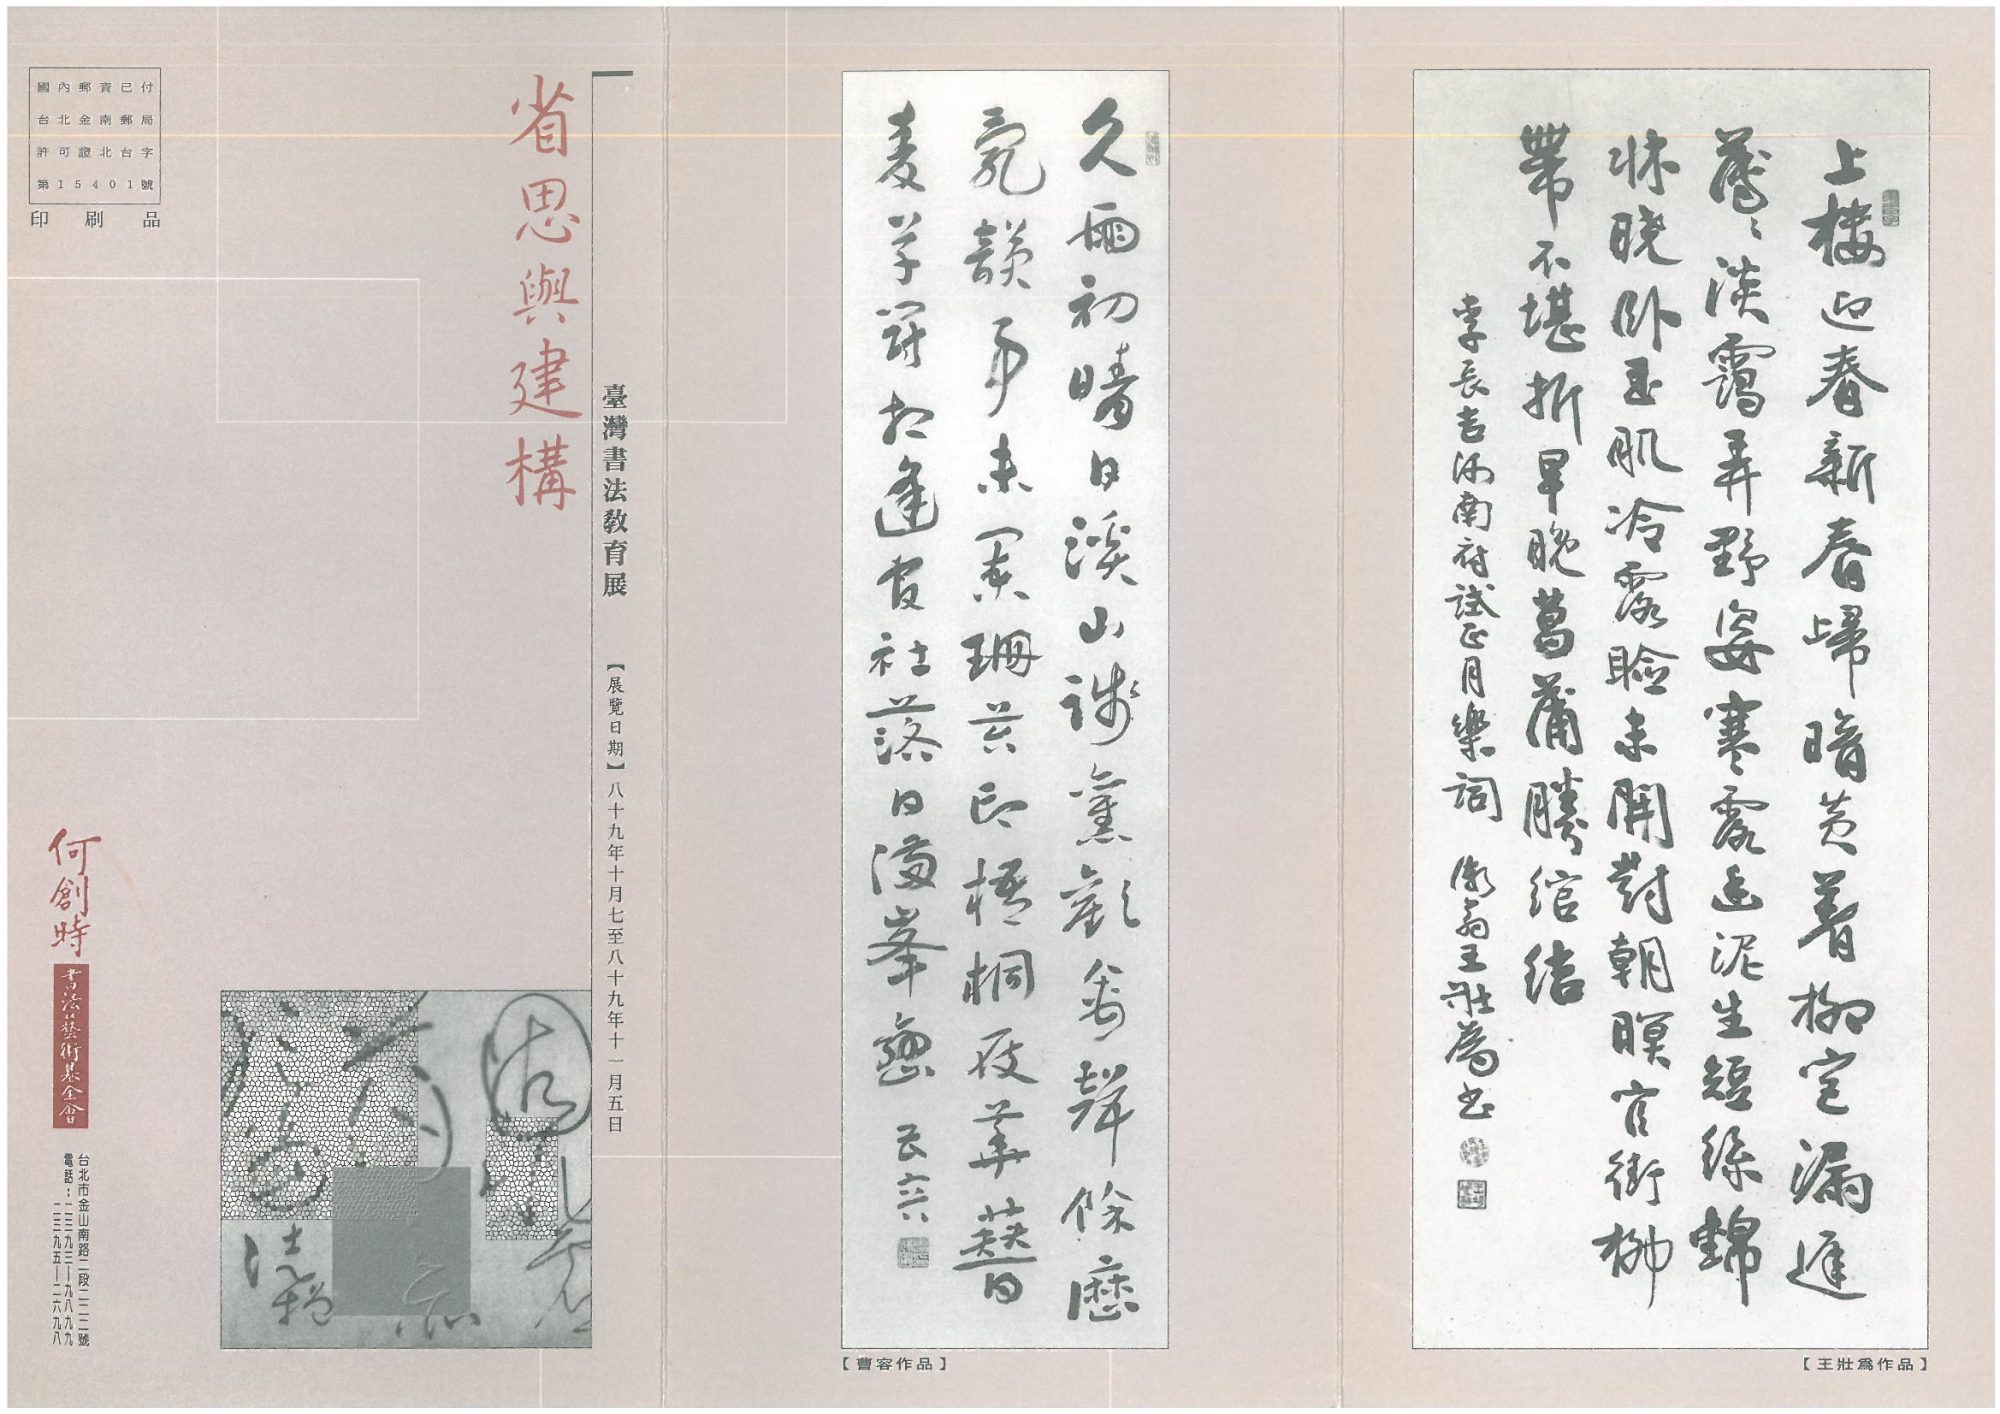 上樓迎春新春歸暗黃著柳宮漏遲
薄〻淡靄弄野姿寒露幽泥生短絲錦
牀曉臥玉肌冷露瞼未開對朝暝官街柳
帶不堪折早晚菖蒲勝綰結
李長吉河南府試正月樂詞 漸翁王壯為書
【王壯為作品】
久雨初晴日溪山訪舊歡禽聲餘歷
亂韻事未闌珊苔印梧桐屐
相逢社落日滿峯巒
【曹容作品】
省思與建構
臺灣書法教育展
【展覽日期】八十九年十月七至八十九年十一月五日
國內郵資已付
台北金南郵局
許可證北台字
第15401號
印刷品
何創時
書法藝術基金會
台北市金山南路二段二二二號
電話：二三九三—九八九九
二三九五—二六九八